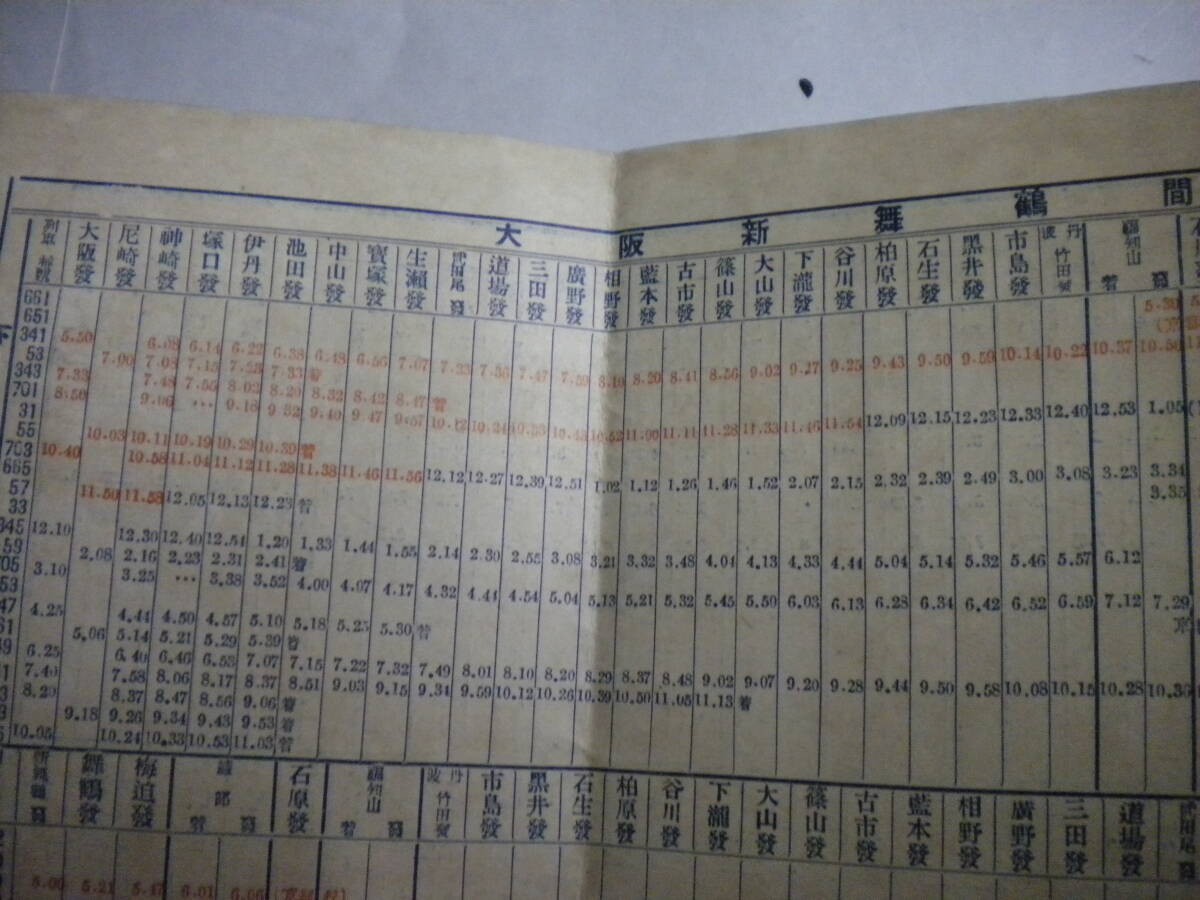 大阪新舞鶴間
列車番號 大阪發 尼崎發 神崎發 塚口發 伊丹發 池田發 中山發 寶塚發 生瀨發 武田尾發 道場發 三田發 廣野發 相野發 藍本發 古市發 篠山發 大山發 下瀧發 谷川發 柏原發 石生發 黑井發 市島發 丹波竹田發 福知山着 發
661 5.30
651
下 341 5.50 6.08 6.14 6.22 6.38 6.48 6.56 7.07 7.23 7.47 7.59 8.10 8.20 8.41 8.56 9.02 9.17 9.25 9.43 9.50 9.59 10.14 10.22 10.37 10.50
53 7.00 7.08 7.15 7.23 7.33 着
343 7.33 7.48 7.56 8.02 8.20 8.32 8.42 8.47 着
701 8.50 9.06 … 9.18 9.32 9.40 9.47 9.57 10.12 10.24 10.33 10.43 10.52 11.00 11.11 11.28 11.33 11.46 11.54 12.09 12.15 12.23 12.33 12.40 12.53 1.05
31
55 10.03 10.11 10.19 10.29 10.39 着
703 10.40 10.58 11.04 11.12 11.28 11.38 11.46 11.56 12.12 12.27 12.39 12.51 1.02 1.12 1.26 1.46 1.52 2.07 2.15 2.32 2.39 2.49 3.00 3.08 3.23 3.34
665 3.35
57 11.50 11.58 12.05 12.13 12.23 着
33
345 12.10 12.30 12.40 12.54 1.20 1.33 1.44 1.55 2.14 2.30 2.55 3.08 3.21 3.32 3.48 4.04 4.13 4.33 4.44 5.04 5.14 5.32 5.46 5.57 6.12
59 2.08 2.16 2.23 2.31 2.41 着
705 3.10 3.25 … 3.38 3.52 4.00 4.07 4.17 4.32 4.44 4.54 5.04 5.13 5.21 5.32 5.45 5.50 6.03 6.13 6.28 6.34 6.42 6.52 6.59 7.12 7.29
53
47 4.25 4.44 4.50 4.57 5.10 5.18 5.25 5.30 着
61 5.06 5.14 5.21 5.29 5.39 着
49 6.25 6.40 6.46 6.53 7.07 7.15 7.22 7.32 7.49 8.01 8.10 8.20 8.29 8.37 8.48 9.02 9.07 9.20 9.28 9.44 9.50 9.58 10.08 10.15 10.28 10.36
1 7.40 7.58 8.06 8.17 8.37 8.51 9.03 9.15 9.34 9.59 10.12 10.26 10.39 10.50 11.05 11.13 着
3 8.20 8.37 8.47 8.56 9.06 着
3 9.18 9.26 9.34 9.43 9.53 着
5 10.05 10.24 10.33 10.53 11.03 着
新舞鶴發 舞鶴發 梅迫發 綾部着 發 石原發 福知山着 發 丹波竹田發 市島發 黑井發 石生發 柏原發 谷川發 下瀧發 大山發 篠山發 古市發 藍本發 相野發 廣野發 三田發 道場發 武田尾發
5.00 5.21 5.47 6.01 6.06